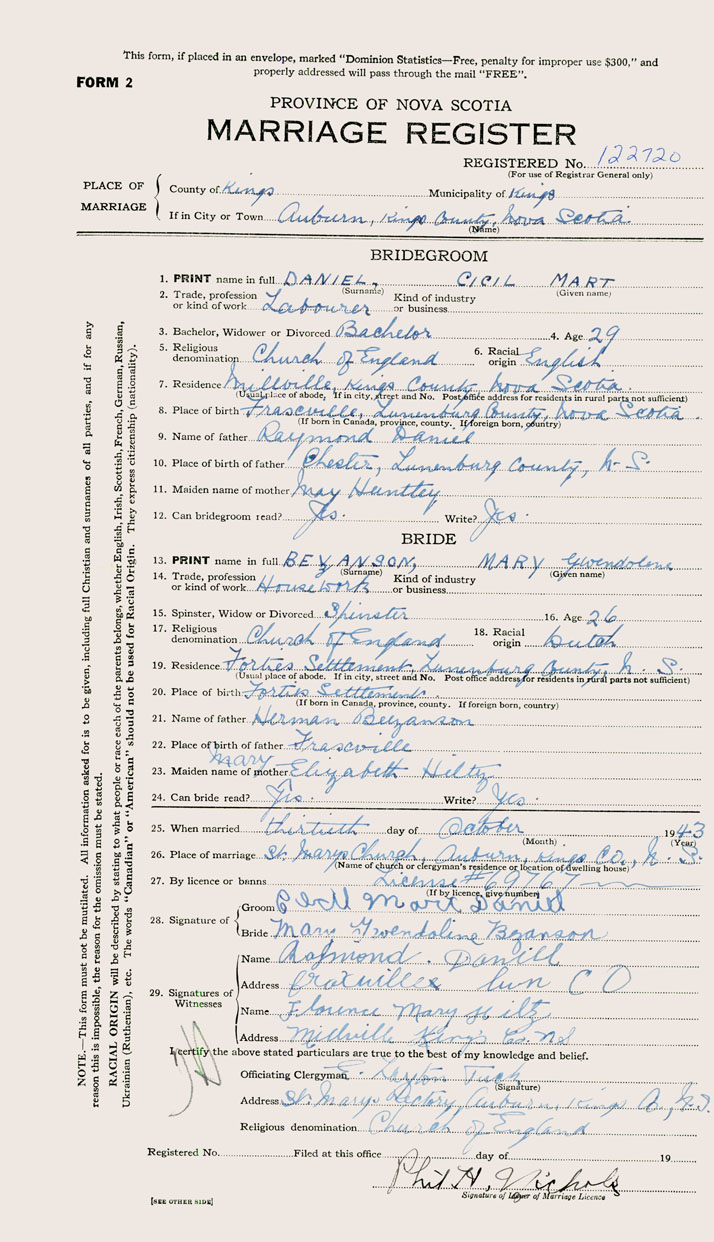 This form, if placed in an envelope, marked "Dominion Statistics—Free, penalty for improper use $300," and
properly addressed will pass through the mail "FREE".
FORM 2
PROVINCE OF NOVA SCOTIA
MARRIAGE REGISTER
REGISTERED No. 122720
(For use of Registrar General only)
PLACE OF MARRIAGE
County of Kings Municipality of Kings
If in City or Town Auburn, Kings County, Nova Scotia
(Name)
BRIDEGROOM
1. PRINT name in full DANIEL, CICIL MART
(Surname) (Given name)
2. Trade, profession or kind of work Labourer Kind of industry or business
3. Bachelor, Widower or Divorced Bachelor 4. Age 29
5. Religious denomination Church of England 6. Racial origin English
7. Residence Millville, Kings County, Nova Scotia
(Usual place of abode. If in city, street and No. Post office address for residents in rural parts not sufficient)
8. Place of birth Frascville, Lunenburg County, Nova Scotia
(If born in Canada, province, county. If foreign born, country)
9. Name of father Raymond Daniel
10. Place of birth of father Chester, Lunenburg County, N. S.
11. Maiden name of mother May Huntley
12. Can bridegroom read? Yes. Write? Yes.
BRIDE
13. PRINT name in full BEZANSON, MARY Gwendolene
(Surname) (Given name)
14. Trade, profession or kind of work Housework Kind of industry or business
15. Spinster, Widow or Divorced Spinster 16. Age 26
17. Religious denomination Church of England 18. Racial origin Dutch
19. Residence Forties Settlement, Lunenburg County, N. S.
(Usual place of abode. If in city, street and No. Post office address for residents in rural parts not sufficient)
20. Place of birth Forties Settlement.
(If born in Canada, province, county. If foreign born, country)
21. Name of father Herman Bezanson
22. Place of birth of father Frascville
23. Maiden name of mother Mary Elizabeth Hiltz
24. Can bride read? Yes. Write? Yes.
25. When married thirtieth day of October 1943
(Month) (Year)
26. Place of marriage St. Marys Church, Auburn, Kings Co., N. S.
(Name of church or clergyman's residence or location of dwelling house)
27. By licence or banns License #69767
(If by licence, give number)
28. Signature of
Groom Cicil Mart Daniel
Bride Mary Gwendoline Bezanson
29. Signatures of Witnesses
Name Daniell
Address Lun CO
Name Florence Mary Hiltz
Address Millville King's Co. NS
I certify the above stated particulars are true to the best of my knowledge and belief.
Officiating Clergyman E. Layton Tuck
(Signature)
Address St. Marys Rectory, Auburn, Kings Co., N.S.
Religious denomination Church of England
Registered No. Filed at this office day of 19
Phil H. Nichols
Signature of Issuer of Marriage Licence
[SEE OTHER SIDE]
NOTE.—This form must not be mutilated. All information asked for is to be given, including full Christian and surnames of all parties, and if for any
reason this is impossible, the reason for the omission must be stated.
RACIAL ORIGIN will be described by stating to what people or race each of the parents belongs, whether English, Irish, Scottish, French, German, Russian,
Ukrainian (Ruthenian), etc. The words "Canadian" or "American" should not be used for Racial Origin. They express citizenship (nationality).